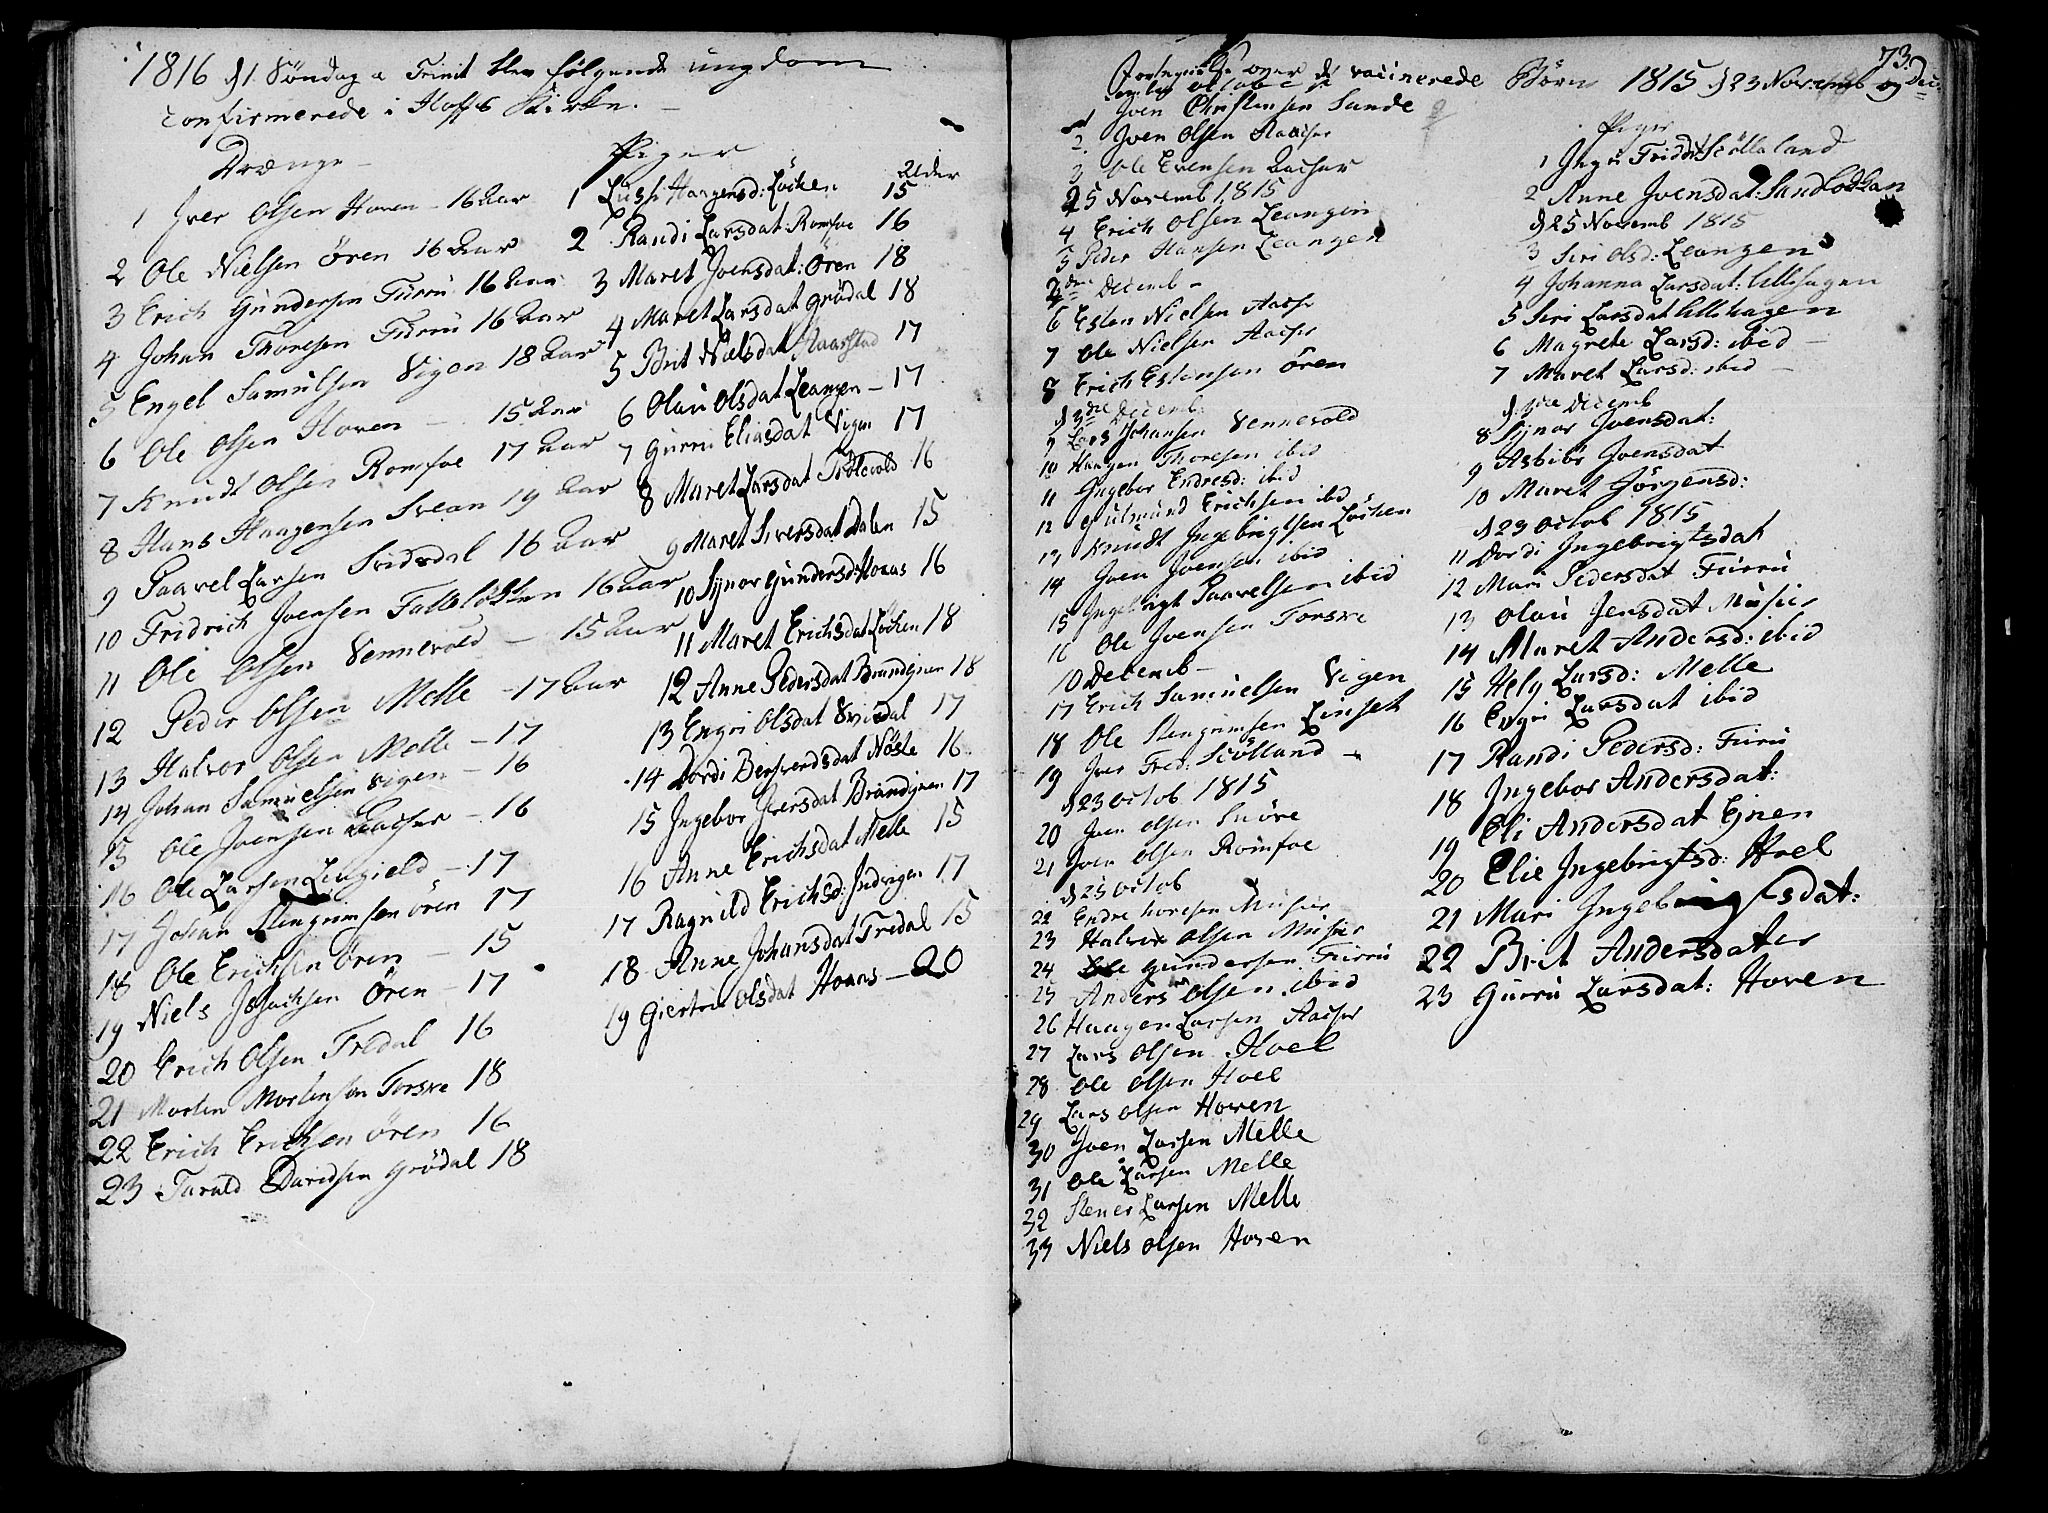 1816 d 1 Söndag a Trinit blev følgende ungdom
confirmerede i Hoffs Kirke.
Drænge
1 Iver Olsen Hoven - 16 Aar
2 Ole Nielsen Ören 16 Aar
3 Erich Gundersen Furru 16 Aar
4 Johan Thoresen Furru 16 Aar
5 Engel Samulsen Vigen 18 Aar
6 Ole Olsen Hoven - 15 Aar
7 Knudt Olsen Romfoe 17 Aar
8 Hans Haagensen Svean 19 Aar
9 Paavel Larsen Svidsdal 16 Aar
10 Fridrich Joensen Falleløkken 16 Aar
11 Ole Olsen Vennevold - 15 Aar
12 Peder Olsen Melle - 17 Aar
13 Halvor Olsen Melle - 17
14 Johan Samuelsen Vigen - 16
15 Ole Joensen Aacher - 16
16 Ole Larsen - 17
17 Johan Stengrimsen Ören 17
18 Ole Erichsen Ören - 15
19 Niels Ören - 17
20 Erich Olsen Tredal 16
21 Morten Mortensen Torske 18
22 Erich Erichsen Ören 16
23 Tarald Davidsen Grödal 18
Piger
Alder
1 Haagensd: Löcken 15
2 Randi Larsdat: Romfoe 16
3 Maret Joensdat: Ören 18
4 Maret Larsdat Grödal 18
5 Brit Nielsdat Haarstad 17
6 Olau Olsdat Leangen - 17
7 Gurru Eliasdat Vigen 17
8 Maret Larsdat 16
9 Maret Siversdat Dalen 15
10 Synor Gundersd: Hoaas 16
11 Maret Erichsdat Löcken 18
12 Anne Pedersdat Brandynen 18
13 Engri Olsdat Svisdal 17
14 Dordi Nöste 16
15 Ingebor Iversdat Brandynen 17
16 Anne Erichsdat Melle 15
17 Ragnild Erichsd: Indvigen 17
18 Anne Johansdat Tredal 15
19 Giertru Olsdat Hoaas - 20
73.
over de vaccinerede Börn 1815 d 23 Novemb og Dec
1 Joen Christensen Sande
2 Joen Olsen Aacher
3 Ole Evensen Aacher
25 Novemb 1815
4 Erich Olsen Leangen
5 Peder Hansen Leangen
2den Decemb -
6 Esten Nielsen Aacher
7 Ole Nielsen Aacher
8 Erich Estensen Ören
d 3die Decemb.
9 Lars Johansen Vennevold
10 Haagen Thoresen ibid
11 Ingebor Endresd: ibid
12 Gulmund Erichsen ibid
13 Knudt Ingebrigtsen Löcken
14 Joen Joensen ibid
15 Ingebrigt Paavelsen ibid
16 Ole Joensen Torske
10 Decemb -
17 Erich Samuelsen Vigen
18 Ole Stengrimsen Linset
19 Iver Fred: Skölland -
d 23 Octob 1815
20 Joen Olsen Snöve
21 Joen Olsen Romfoe
d 25 Octob
22 Endre Thoresen Musier
23 Halvor Olsen Musier
24 Ole Gundersen Furru
25 Anders Olsen ibid
26 Haagen Larsen Aacher
27 Lars Olsen Hoel
28 Ole Olsen Hoel
29 Lars Olsen Hoven
30 Joen Larsen Melle
31 Ole Larsen Melle
32 Stener Larsen Melle
33 Niels Olsen Hoven
Piger
1 Ingri Fridr: Skölland
2 Anne Joensdat: Sandlökken
d 25 Novemb 1815
3 Siri Olsd: Leangen
4 Johanna Larsdat: Ullehagen
5 Siri Larsdat Ullehagen
6 Magrete Larsd: ibid -
7 Maret Larsd: ibid -
d. 3die Decemb
8 Synor Joensdat:
9 Asbiör Joensdat
10 Maret Jörgensd:
d 23 Octob 1815
11 Dordi Ingebrigtsdat
12 Mari Pedersdat Furru
13 Olau Jensdat Musier
14 Maret Andersd: ibid
15 Hely Larsd: Melle
16 Engri Larsdat ibid
17 Randi Pedersd: Furu
18 Ingebor Andersdat:
19 Eli Andersdat Eynen
20 Elie Ingebrigtsd: Hoel
21 Mari Ingebrigtsdat:
22 Brit Andersdater
23 Gurru Larsdat: Hoven